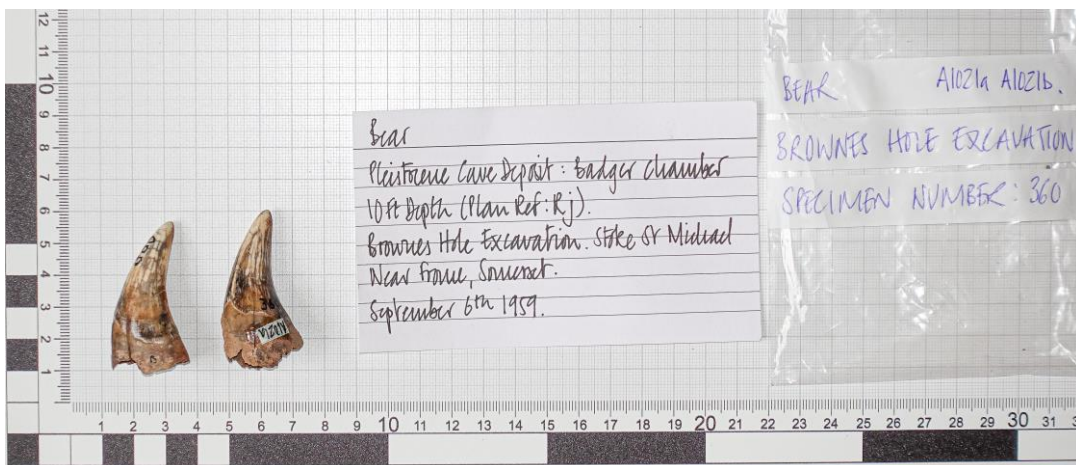 Bear
Pleistocene Cave Deposit: Badger Chamber
10ft Depth (Plan Ref: Rj).
Brownes Hole Excavation. Stoke St Michael
Near Frome, Somerset.
September 6th 1959.
BEAR A1021a A1021b.
BROWNES HOLE EXCAVATION
SPECIMEN NUMBER: 360
A1021A
12
11
10
9
8
7
6
5
4
3
2
1
1 2 3 4 5 6 7 8 9 10 11 12 13 14 15 16 17 18 19 20 21 22 23 24 25 26 27 28 29 30 31